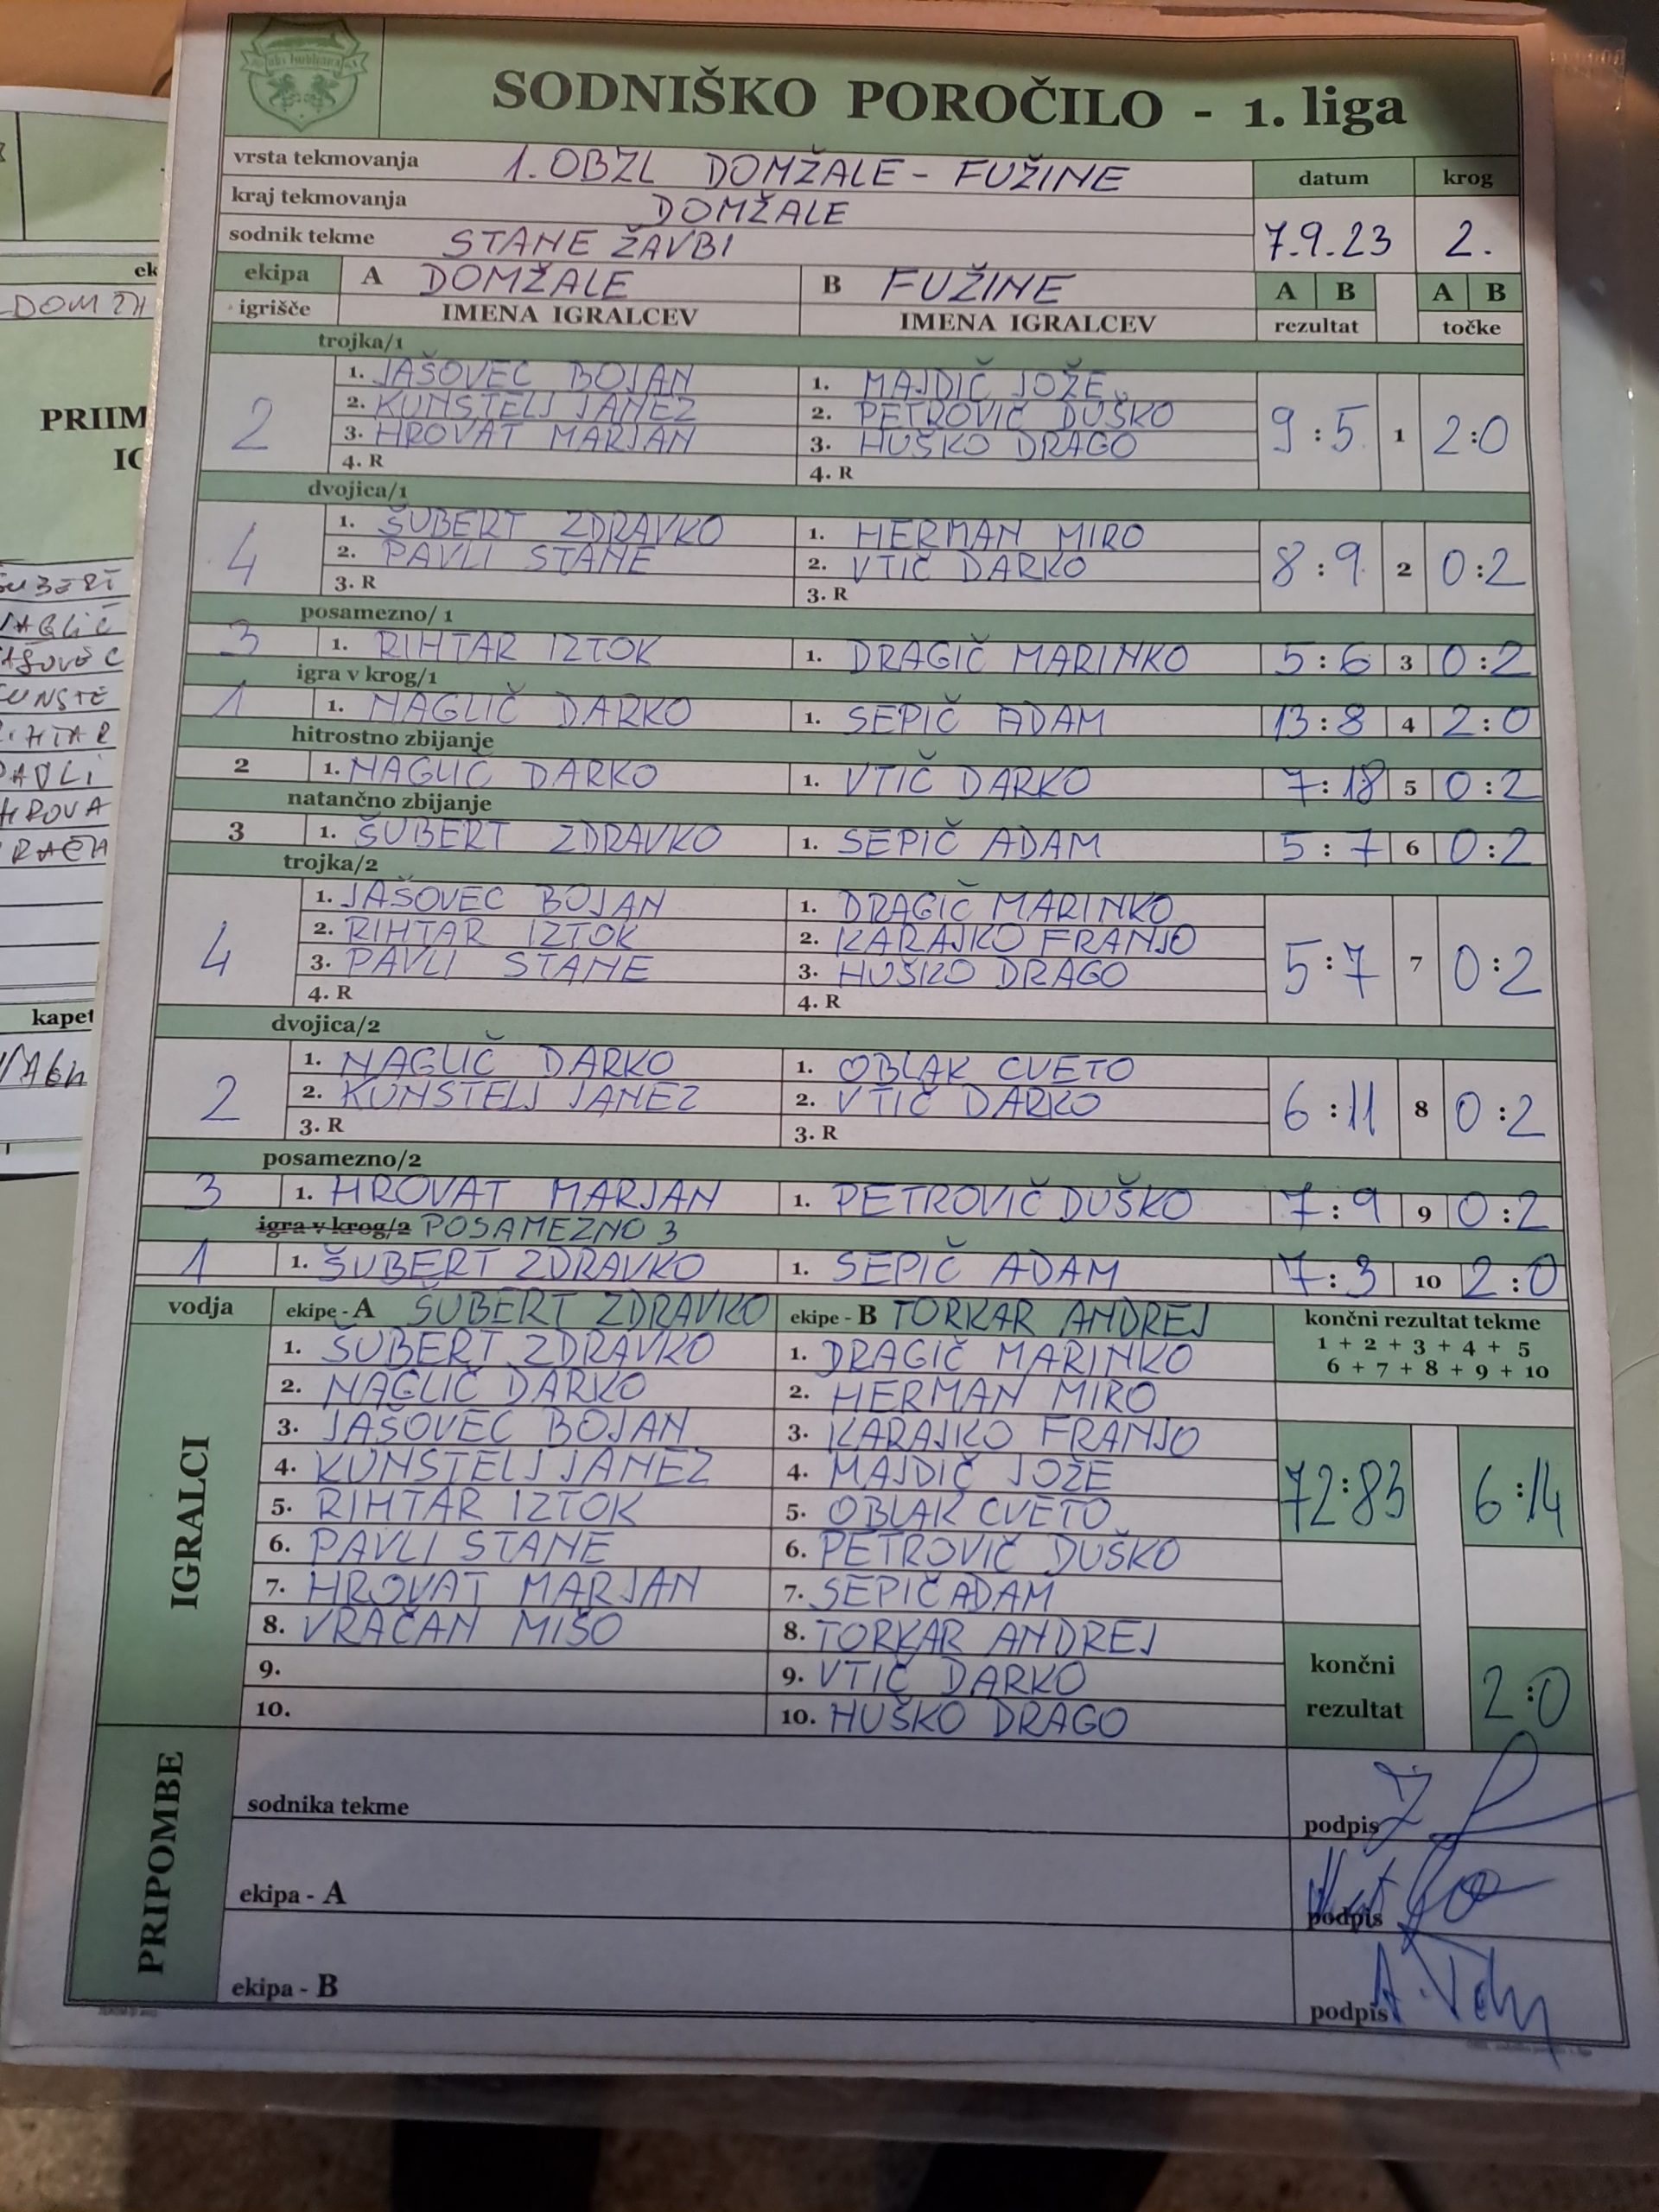 SODNIŠKO POROČILO - 1. liga
vrsta tekmovanja 1. OBZL DOMŽALE - FUŽINE datum krog
kraj tekmovanja DOMŽALE
sodnik tekme STANE ŽAVBI 7.9.23 2.
ekipa A DOMŽALE B FUŽINE A B A B
igrišče IMENA IGRALCEV IMENA IGRALCEV rezultat točke
trojka/1
1. JAŠOVEC BOJAN 1. MAJDIČ JOŽE
2 2. KUNSTELJ JANEZ 2. PETROVIČ DUŠKO 9:5 1 2:0
3. HROVAT MARJAN 3. HUŠKO DRAGO
4. R 4. R
dvojica/1
1. ŠUBERT ZDRAVKO 1. HERMAN MIRO
4 2. PAVLI STANE 2. VTIČ DARKO 8:9 2 0:2
3. R 3. R
posamezno/1
3 1. RIHTAR IZTOK 1. DRAGIČ MARINKO 5:6 3 0:2
igra v krog/1
1 1. NAGLIČ DARKO 1. SEPIČ ADAM 13:8 4 2:0
hitrostno zbijanje
2 1. NAGLIČ DARKO 1. VTIČ DARKO 7:18 5 0:2
natančno zbijanje
3 1. ŠUBERT ZDRAVKO 1. SEPIČ ADAM 5:7 6 0:2
trojka/2
1. JAŠOVEC BOJAN 1. DRAGIČ MARINKO
2. RIHTAR IZTOK 2. KARAJKO FRANJO
4 3. PAVLI STANE 3. HUŠKO DRAGO 5:7 7 0:2
4. R 4. R
dvojica/2
1. NAGLIČ DARKO 1. OBLAK CVETO
2 2. KUNSTELJ JANEZ 2. VTIČ DARKO 6:11 8 0:2
3. R 3. R
posamezno/2
3 1. HROVAT MARJAN 1. PETROVIČ DUŠKO 7:9 9 0:2
igra v krog/2 POSAMEZNO 3
1 1. ŠUBERT ZDRAVKO 1. SEPIČ ADAM 7:3 10 2:0
vodja ekipe - A ŠUBERT ZDRAVKO ekipe - B TORKAR ANDREJ končni rezultat tekme
1 + 2 + 3 + 4 + 5
6 + 7 + 8 + 9 + 10
IGRALCI
1. ŠUBERT ZDRAVKO 1. DRAGIČ MARINKO
2. NAGLIČ DARKO 2. HERMAN MIRO
3. JAŠOVEC BOJAN 3. KARAJKO FRANJO
4. KUNSTELJ JANEZ 4. MAJDIČ JOŽE
5. RIHTAR IZTOK 5. OBLAK CVETO 72:83 6:14
6. PAVLI STANE 6. PETROVIČ DUŠKO
7. HROVAT MARJAN 7. SEPIČ ADAM
8. VRAČAN MIŠO 8. TORKAR ANDREJ
9. 9. VTIČ DARKO končni
10. 10. HUŠKO DRAGO rezultat 2:0
PRIPOMBE
sodnika tekme podpis
ekipa - A podpis
ekipa - B podpis
ek
DOMŽA
PRIIM
IG
ŠUBERT
NAGLIČ
JAŠOVEC
KUNSTE
RIHTAR
PAVLI
HROVA
VRAČA
kapet